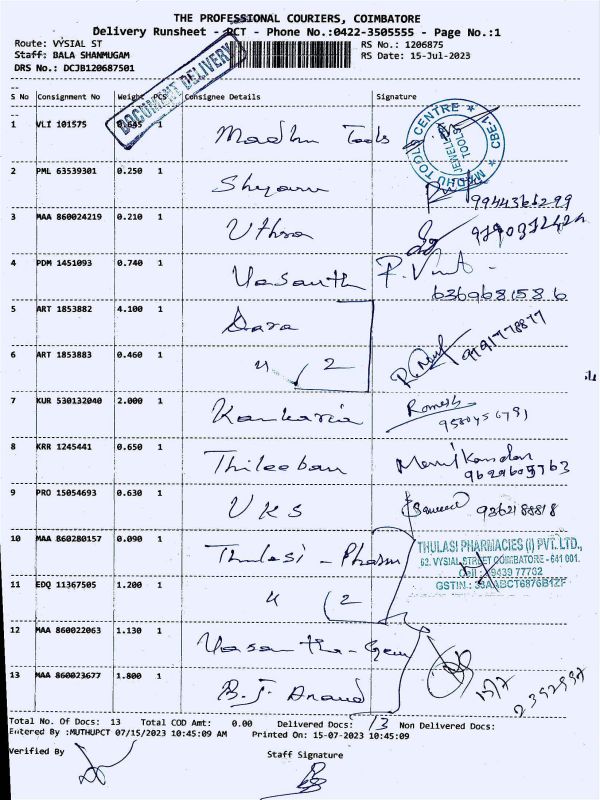 THE PROFESSIONAL COURIERS, COIMBATORE
Delivery Runsheet - RCT - Phone No.:0422-3505555 - Page No.:1
Route: VYSIAL ST RS No.: 1206875
Staff: BALA SHANMUGAM RS Date: 15-Jul-2023
DRS No.: DCJB120687501
DOCUMENT DELIVERY
S No Consignment No Weight PCS Consignee Details Signature
1 VLI 101575 0.645 1 Madhu Tools
MADHU TOOLS CENTRE * CBE-1 *
JEWELLERY TOOLS
2 PML 63539301 0.250 1 Shyam
3 MAA 860024219 0.210 1 Uthra
4 PDM 1451093 0.740 1 Vasanth P. Vint
6369681586
5 ART 1853882 4.100 1 Dara
9791778877
6 ART 1853883 0.460 1 " 2
7 KUR 530132040 2.000 1 Kankaria Romesh
9580456791
8 KRR 1245441 0.650 1 Thileeban Manikandan
9629605763
9 PRO 15054693 0.630 1 UKS 9362188818
10 MAA 860280157 0.090 1 Thulasi - Pharm
THULASI PHARMACIES (I) PVT. LTD.,
62. VYSIAL STREET COIMBATORE - 641 001.
Cell : 99439 77762
GSTIN : 33AABCT6876B1ZF
11 EDQ 11367505 1.200 1 " 2
12 MAA 860022063 1.130 1 Vasantha - Gem
13 MAA 860023677 1.800 1 B.J. Anand
15/7
2392937
Total No. Of Docs: 13 Total COD Amt: 0.00 Delivered Docs: 13 Non Delivered Docs:
Entered By :MUTHUPCT 07/15/2023 10:45:09 AM Printed On: 15-07-2023 10:45:09
Verified By Staff Signature